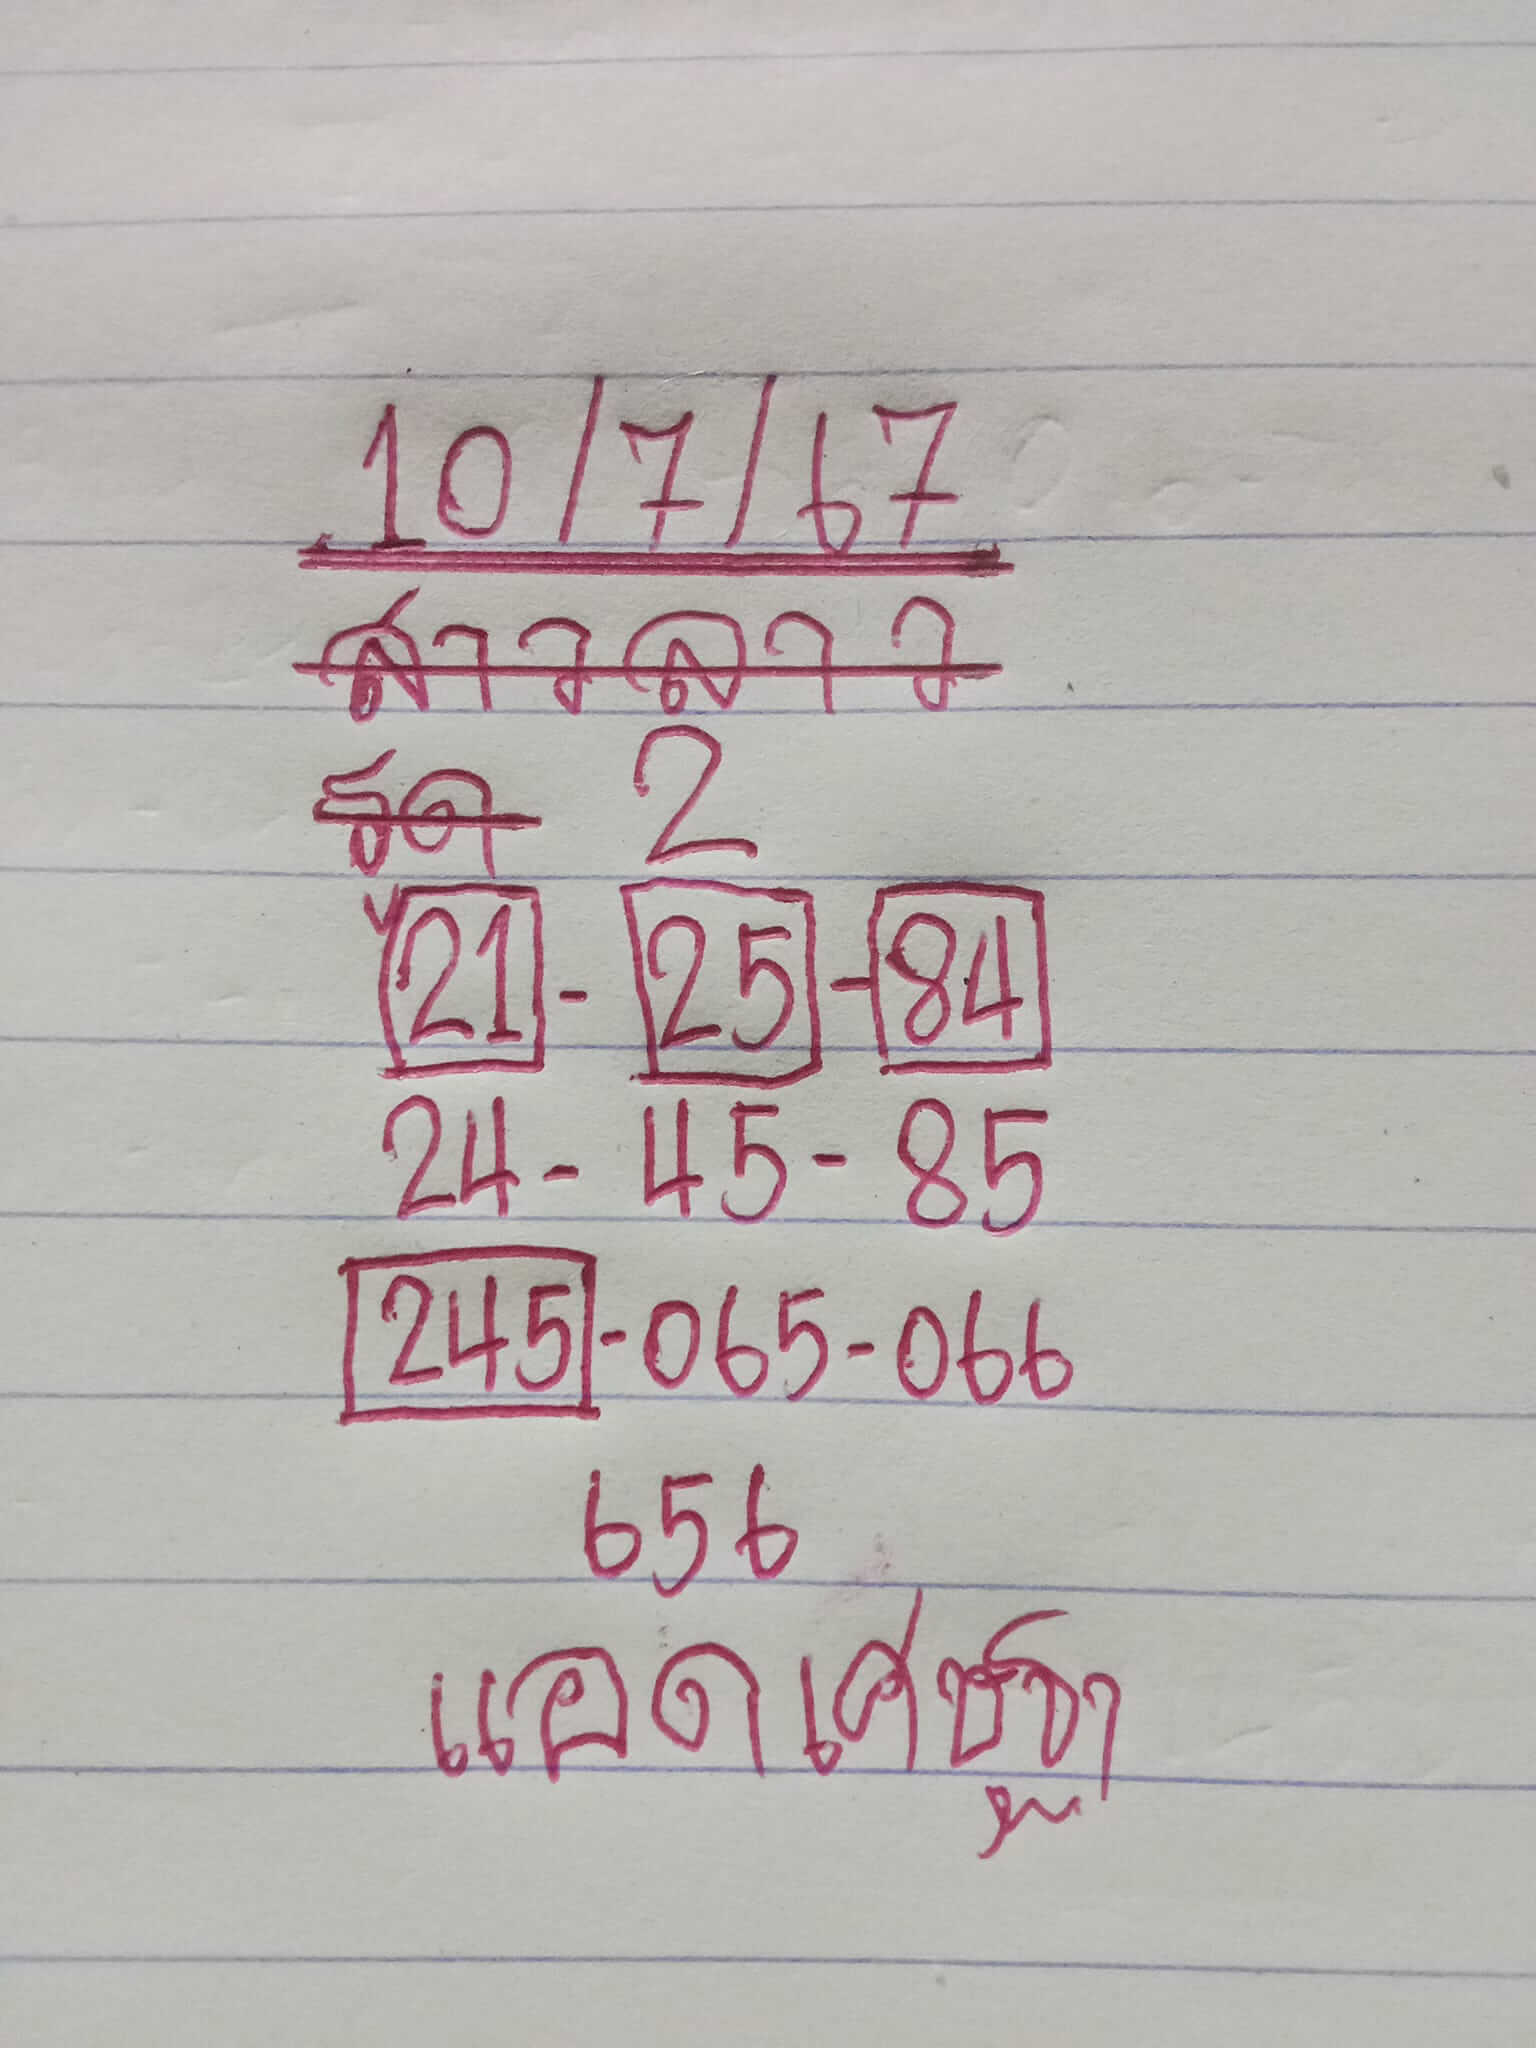 10/7/67
สาวลาว
รูด 2
21 - 25 - 84
24 - 45 - 85
245 - 065 - 066
656
แอด